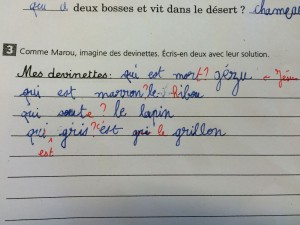 qui a deux bosses et vit dans le désert ? chameau
3 Comme Marou, imagine des devinettes. Écris-en deux avec leur solution.
Mes devinettes: qui est mort? gézu = Jésus
qui est marron? le hibou
qui saute ? le lapin
qui gris? c'est le grillon
est